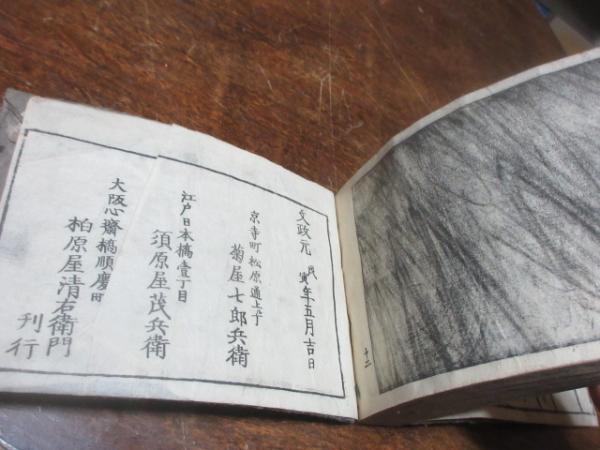 文政元戊寅年五月吉日
京寺町松原通上ル
菊屋七郎兵衛
江戸日本橋壹丁目
須原屋茂兵衛
大阪心齋橋順慶町
柏原屋清右衛門
刊行
十二